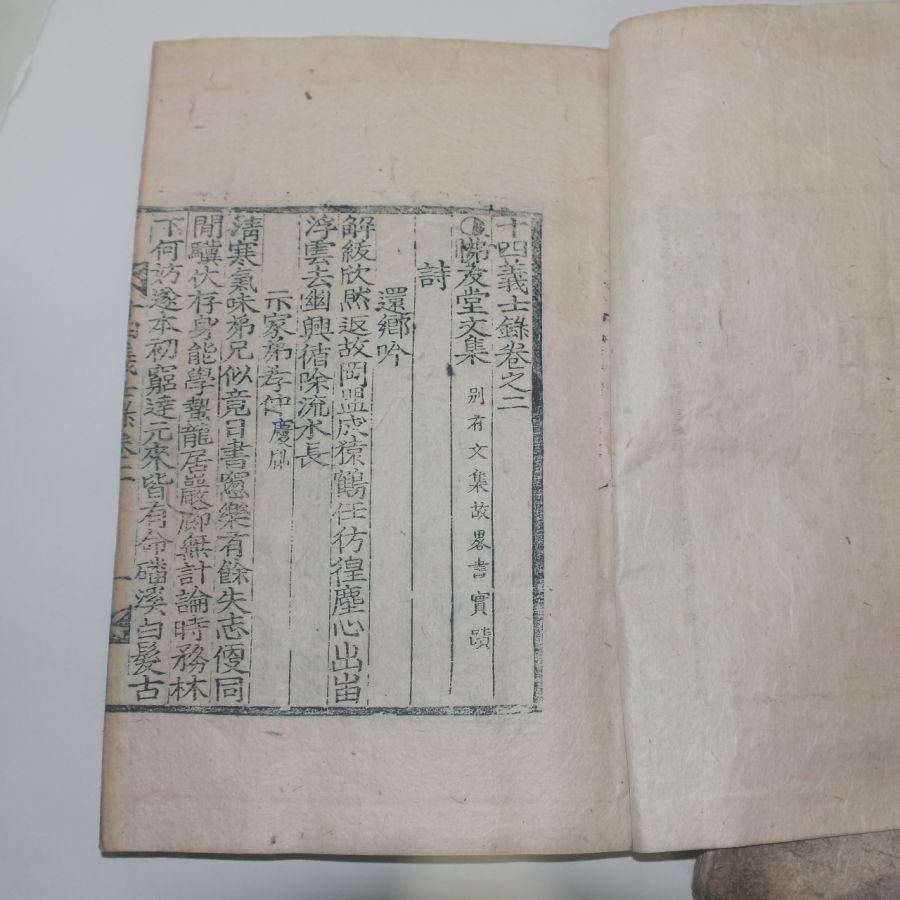 十四義士錄卷之二
佛友堂文集 別有文集故畧書實蹟
詩
還鄉吟
解紱欣然返故岡盟成猿鶴任彷徨塵心出岫
浮雲去幽興循除流水長
示家弟孝仲慶
淸寒氣味弟兄似竟日書窓樂有餘失志便同
閒驥伏存身能學蟄龍居巖廊無計論時務林
下何妨遂本初窮達元來皆有命磻溪白髮古
十四義士錄卷二 一